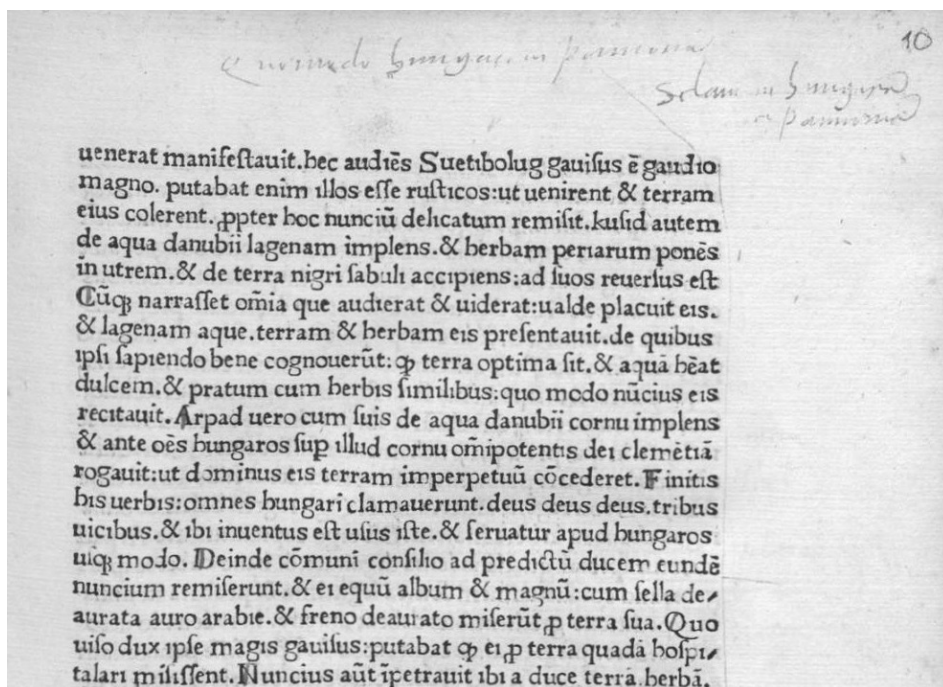 10
Quomodo hungari in pannonia
uenerat manifestauit.hec audiēs Suetibolug gauisus ē gaudio
magno. putabat enim illos esse rusticos:ut uenirent & terram
eius colerent.ꝓpter hoc nunciū delicatum remisit.kusid autem
de aqua danubii lagenam implens.& herbam periarum ponēs
in utrem.& de terra nigri sabuli accipiens:ad suos reuersus est
Cūqꝫ narrasset om̄ia que audierat & uiderat:ualde placuit eis.
& lagenam aque.terram & herbam eis presentauit.de quibus
ipsi sapiendo bene cognouerūt:ꝙ terra optima sit.& aquā hēat
dulcem.& pratum cum herbis similibus:quo modo nūcius eis
recitauit.Arpad uero cum suis de aqua danubii cornu implens
& ante oēs hungaros suꝑ illud cornu om̄ipotentis dei clemētiā
rogauit:ut dominus eis terram imperpetuū cōcederet.Finitis
his uerbis:omnes hungari clamauerunt.deus deus deus.tribus
uicibus.& ibi inuentus est usus iste.& seruatur apud hungaros
uiqꝫ modo. Deinde cōmuni consilio ad predictū ducem eundē
nuncium remiserunt.& ei equū album & magnū:cum sella de⸗
aurata auro arabie.& freno deaurato miserūt ꝓ terra sua.Quo
uiso dux ipse magis gauisus:putabat ꝙ ei ꝓ terra quadā hospi⸗
talari misissent.Nuncius aūt īpetrauit ibi a duce terrā.herbā.